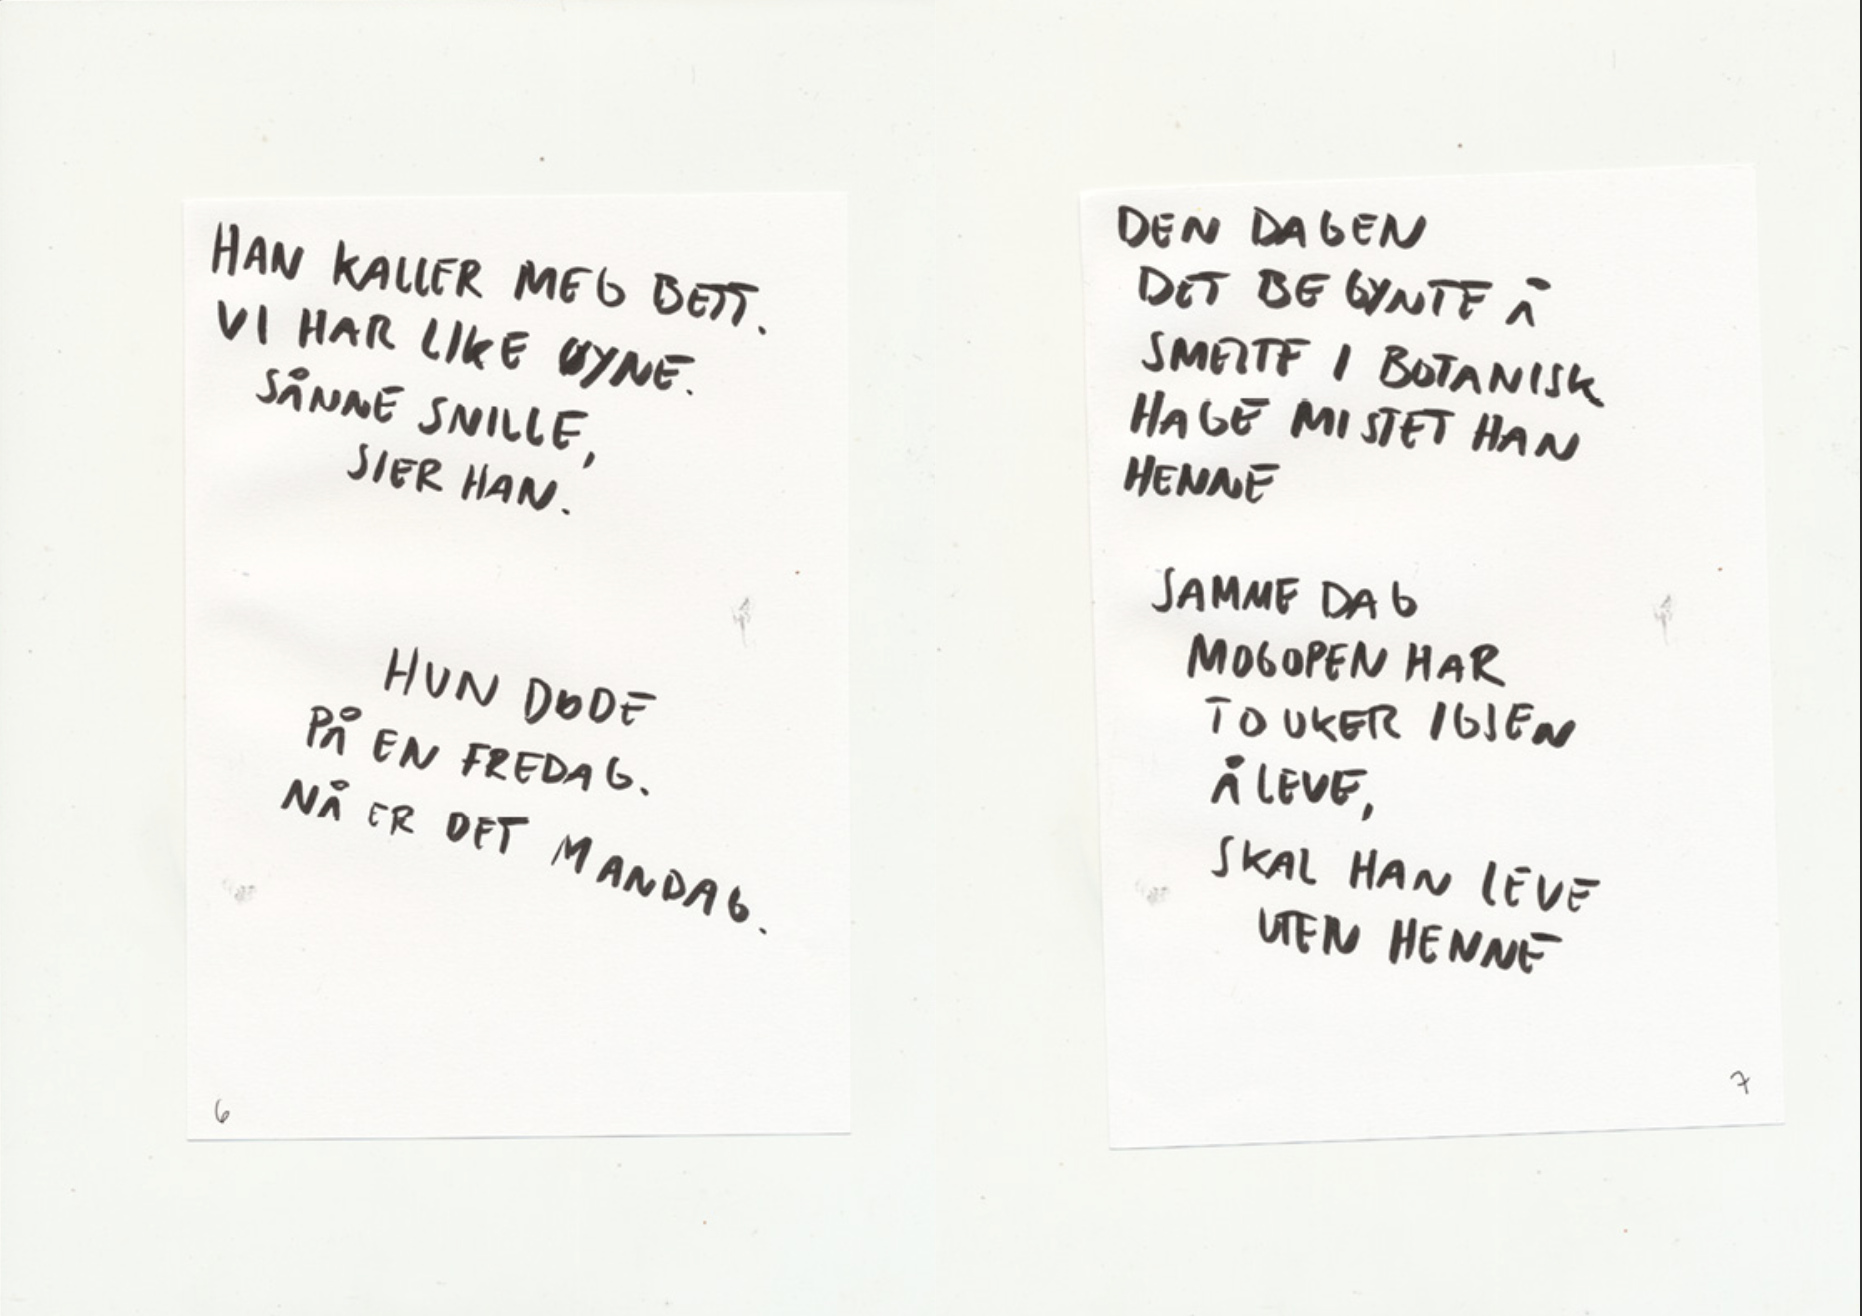 HAN KALLER MEG BETT.
VI HAR LIKE ØYNE.
SÅNNE SNILLE,
SIER HAN.
HUN DØDE
PÅ EN FREDAG.
NÅ ER DET MANDAG.
6
DEN DAGEN
DET BEGYNTE Å
SMELTE I BOTANISK
HAGE MISTET HAN
HENNE
SAMME DAG
MOGOPEN HAR
TO UKER IGJEN
Å LEVE,
SKAL HAN LEVE
UTEN HENNE
7